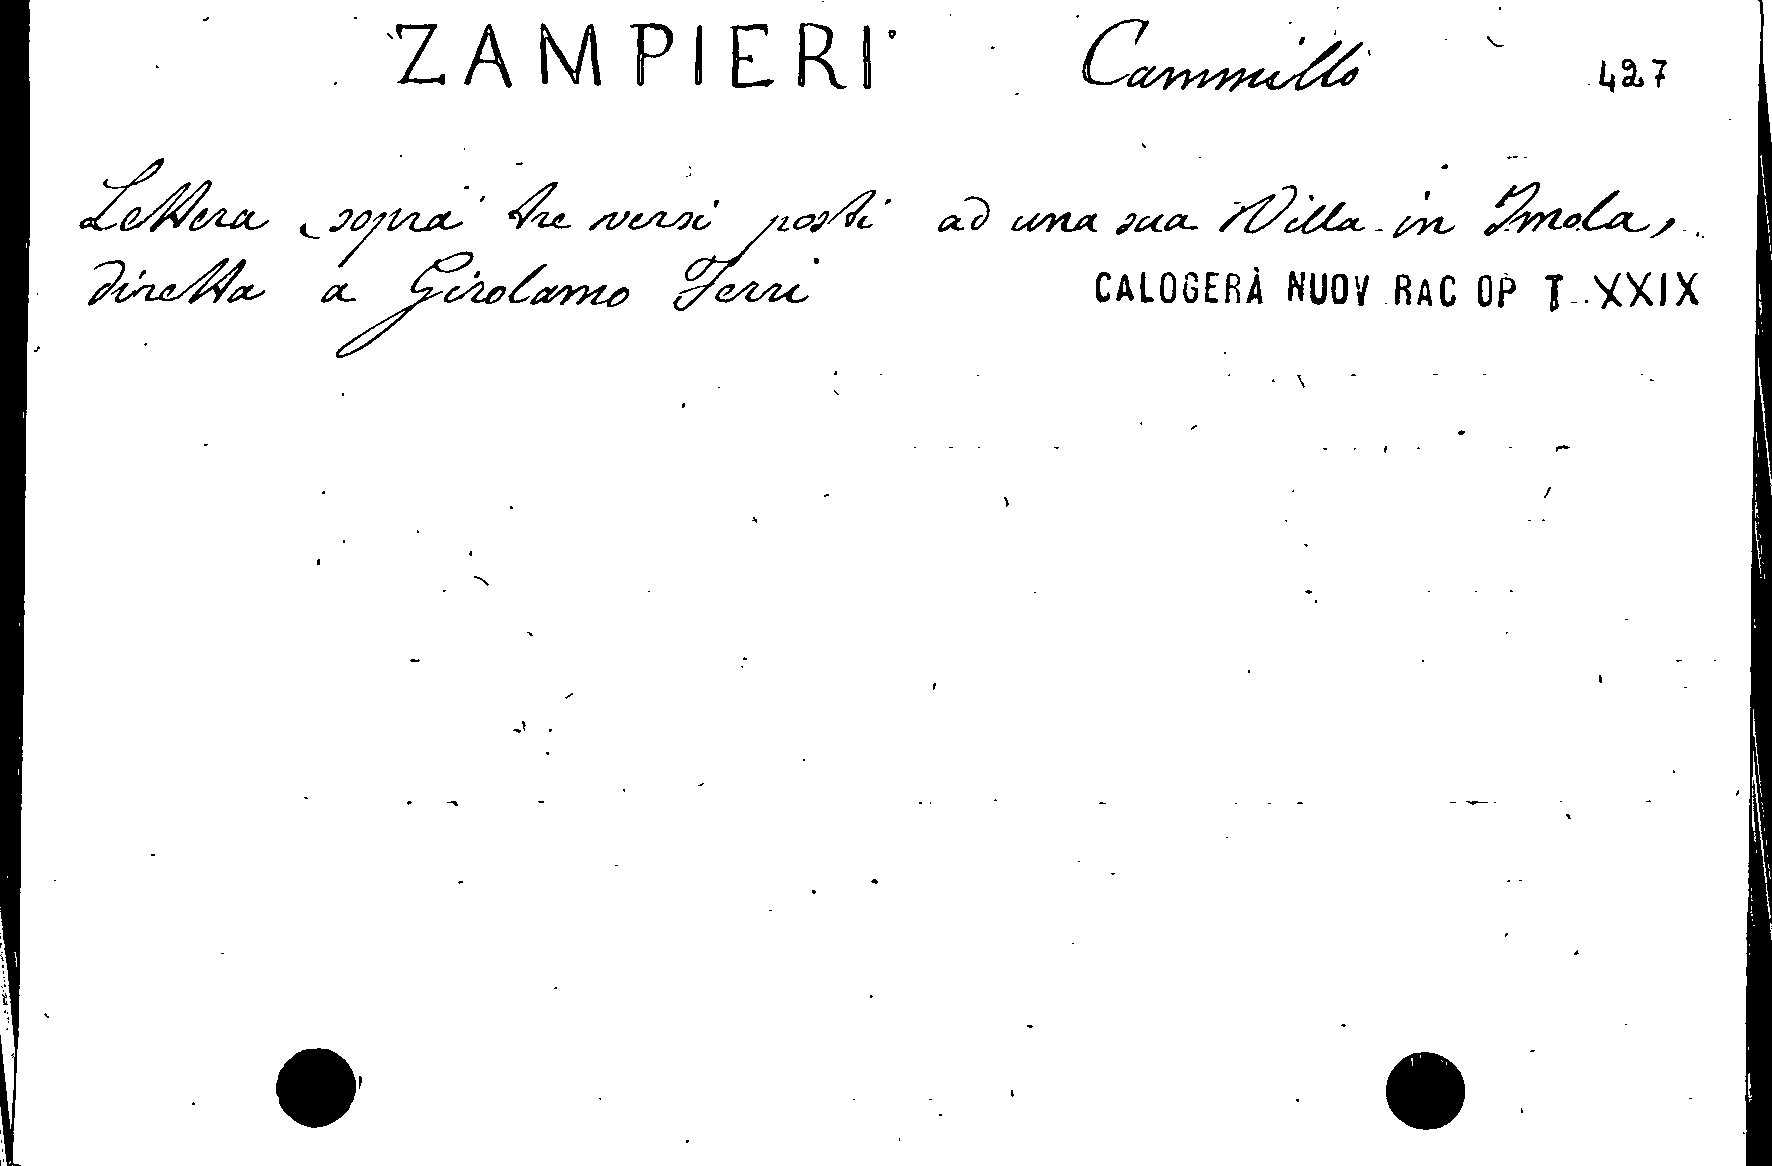 ZAMPIERI Cammillo 427
Lettera sopra tre versi posti ad una sua Villa in Imola,
diretta a Girolamo Ferri CALOGERÀ NUOV RAC OP T. XXIX